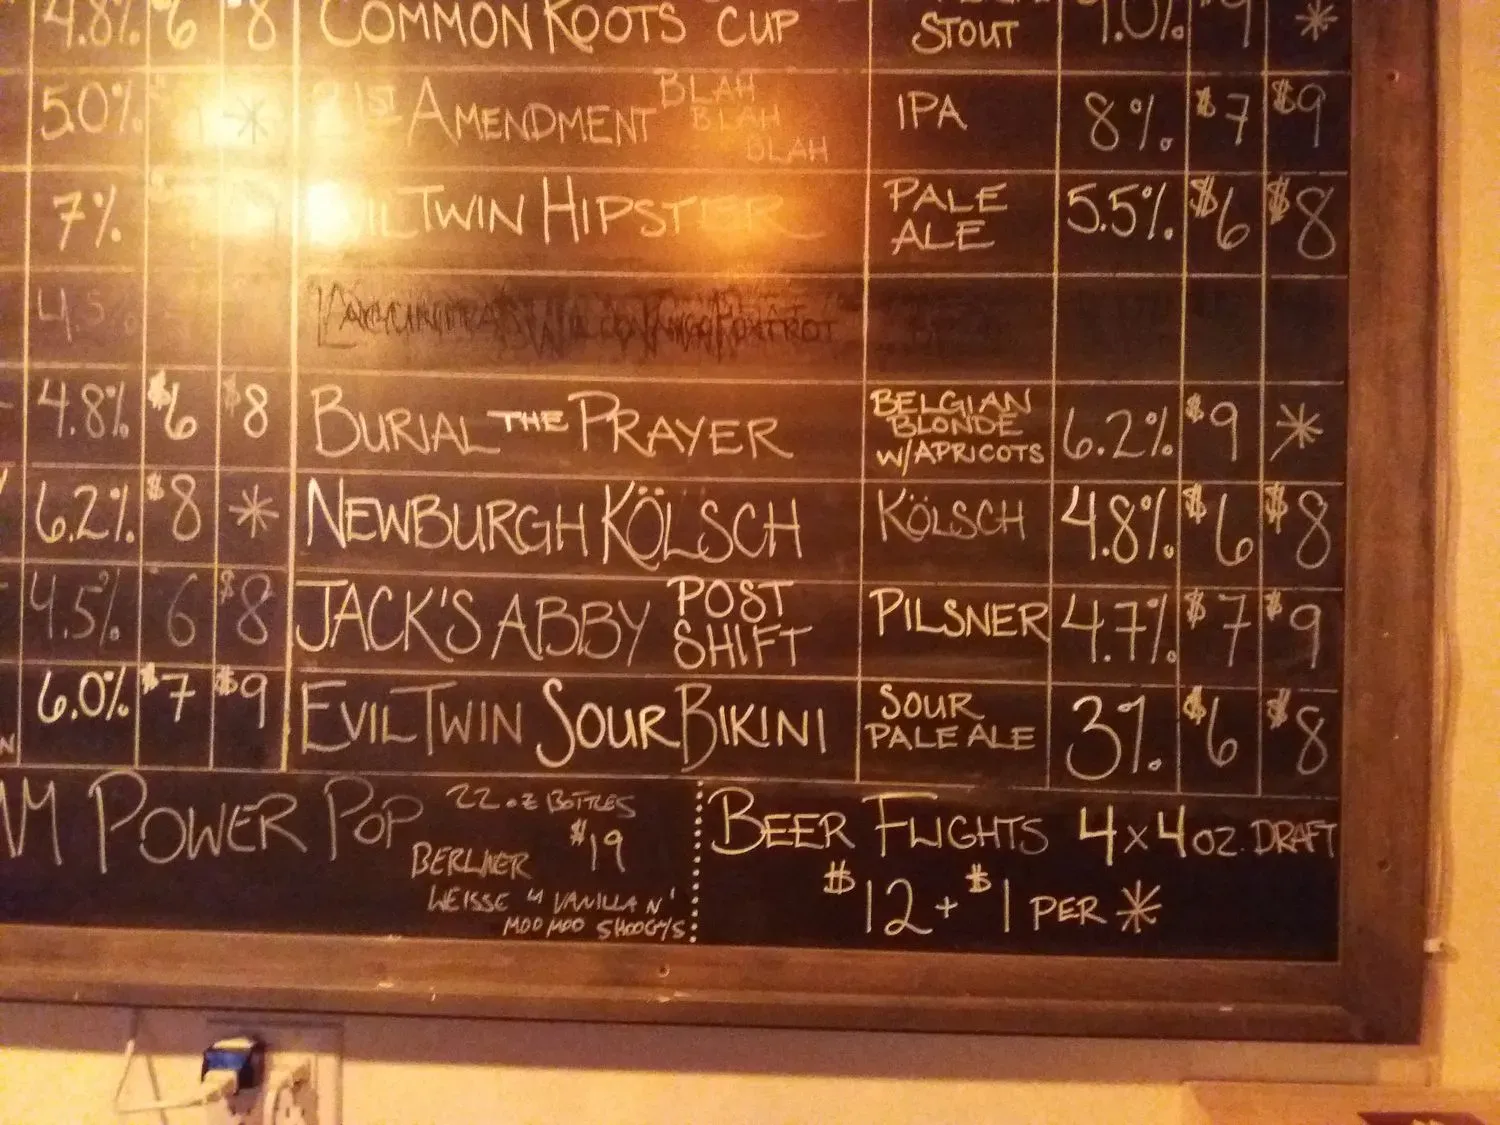 4.8% $6 $8 COMMON ROOTS CUP STOUT 9.0% $9 *
5.0% * 21ST AMENDMENT BLAH IPA 8% $7 $9
BLAH
BLAH
7% EVIL TWIN HIPSTER PALE 5.5% $6 $8
ALE
4.5%
4.8% $6 $8 BURIAL THE PRAYER BELGIAN 6.2% $9 *
BLONDE
W/APRICOTS
6.2% $8 * NEWBURGH KÖLSCH KÖLSCH 4.8% $6 $8
4.5% 6 $8 JACK'S ABBY POST PILSNER 4.7% $7 $9
SHIFT
6.0% $7 $9 EVIL TWIN SOUR BIKINI SOUR 3% $6 $8
PALE ALE
POWER POP 22 oz BOTTLES
$19
BERLINER
WEISSE "VANILLA N'
MOO MOO SHOOGY'S
BEER FLIGHTS 4 x 4 OZ. DRAFT
$12 + $1 PER *